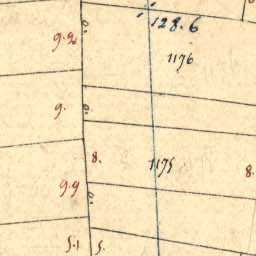 128.6
9.2
1176
9.
8.
1175
8.
9.9
5.1
5.